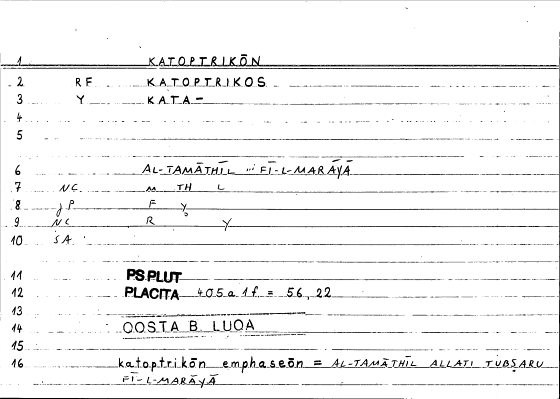 1 KATOPTRIKŌN
2 RF KATOPTRIKOS
3 Y KATA-
4
5
6 AL-TAMĀTHĪL ... FĪ-L-MARĀYĀ
7 NC M TH L
8 JP F Y
9 NC R Y
10 SA
11 PS.PLUT
12 PLACITA 405a 1f = 56,22
13
14 QOSTA B LUQA
15
16 katoptrikōn emphaseōn = AL-TAMĀTHĪL ALLATI TUBṢARU
FĪ-L-MARĀYĀ